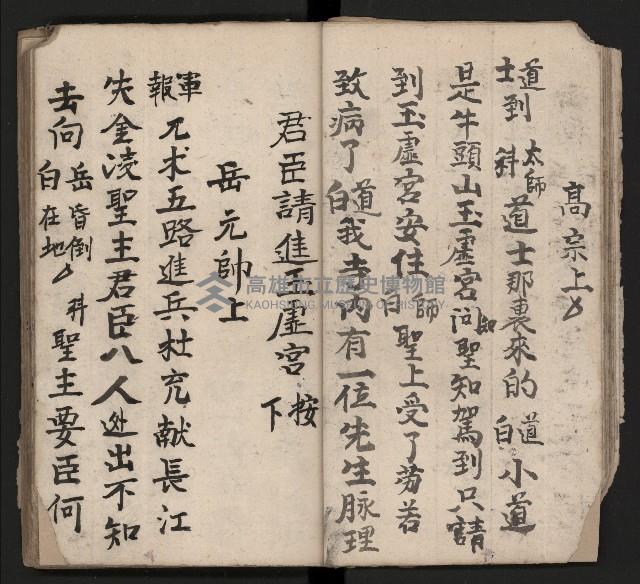 高宗上
道士到 太師斜 道士那裏來的 道白 小道
是牛頭山玉虛宮 聖知駕到只請
到玉虛宮安住 師白 聖上受了劳若
致病了 道白 我寺内有一位先生脉理
君臣請進玉虛宮 按下
岳元帥上
軍報 兀术五路進兵杜充献長江
失金凌聖主君臣八人处出不知
去向 岳昏倒在地 白 斜 聖主要臣何
高雄市立歷史博物館
KAOHSIUNG MUSEUM OF HISTORY